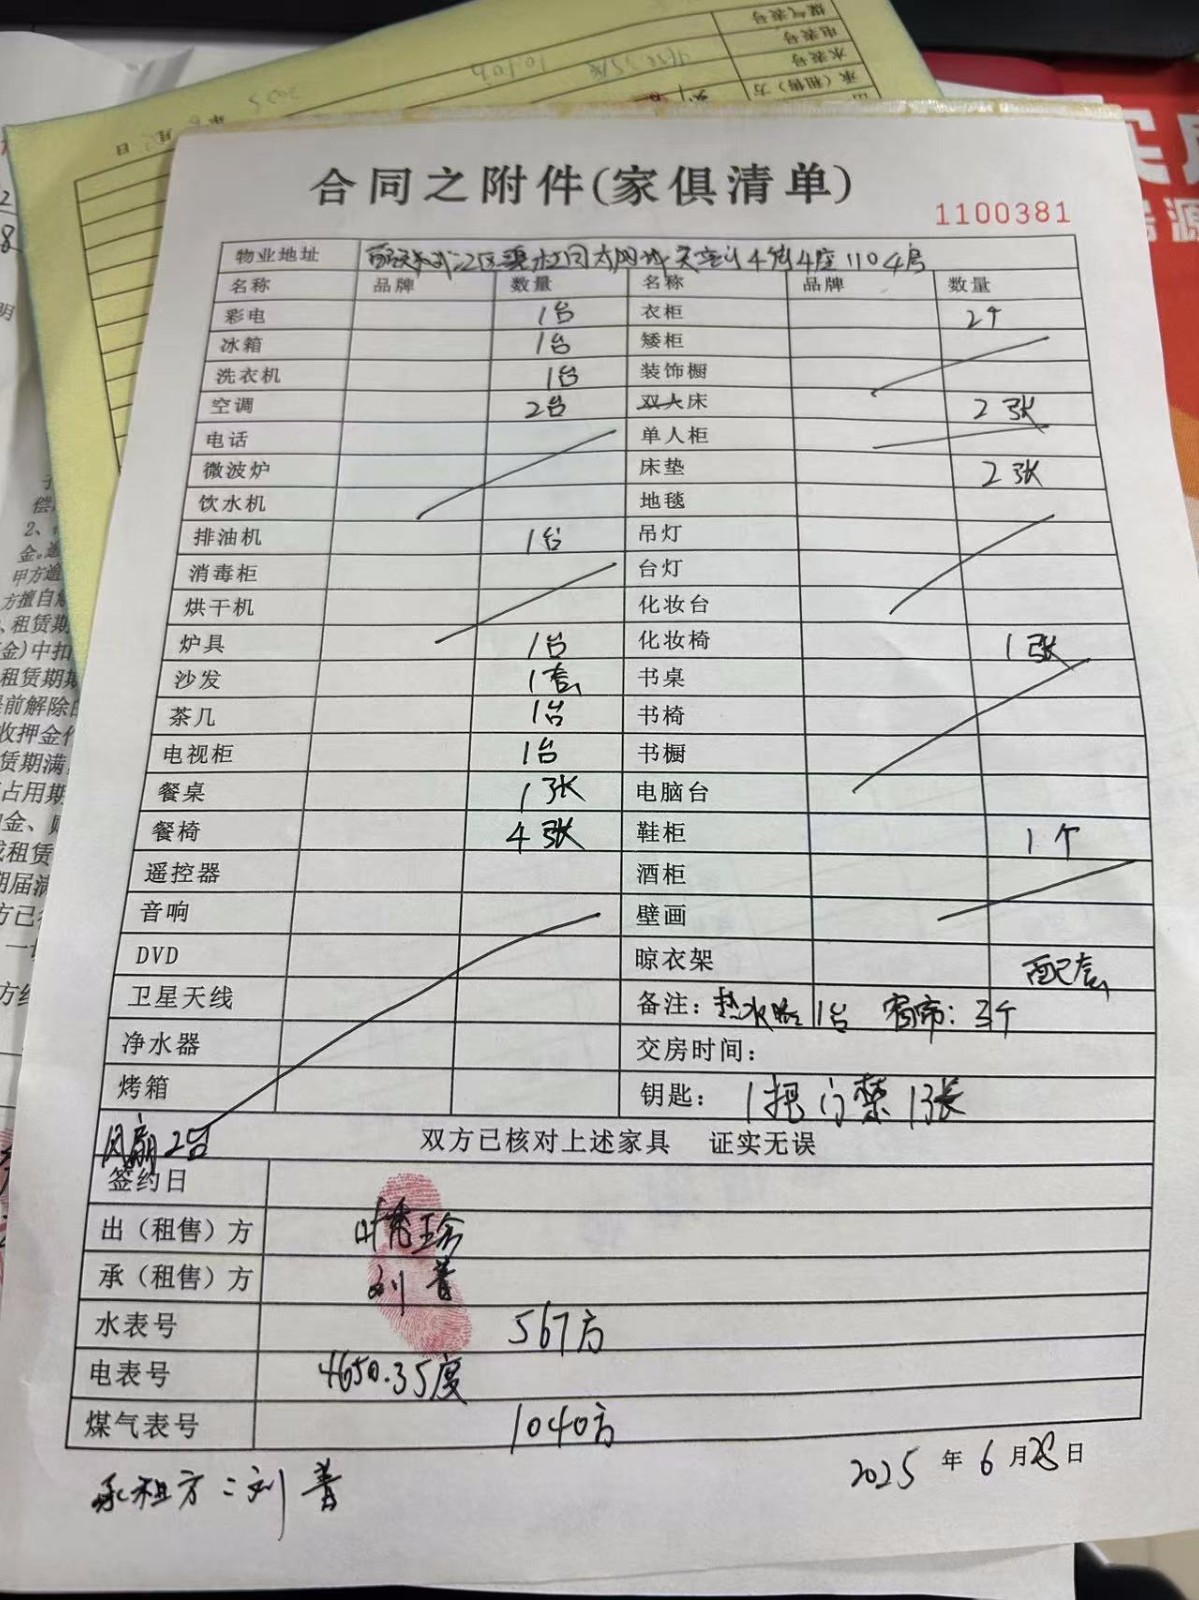 合同之附件(家俱清单)
1100381
物业地址 4座1104房
名称 品牌 数量 名称 品牌 数量
彩电 1台 衣柜 2个
冰箱 1台 矮柜
洗衣机 1台 装饰橱
空调 2台 双人床 2张
电话 单人柜
微波炉 床垫 2张
饮水机 地毯
排油机 1台 吊灯
消毒柜 台灯
烘干机 化妆台
炉具 1台 化妆椅 1张
沙发 1套 书桌
茶几 1台 书椅
电视柜 1台 书橱
餐桌 1张 电脑台
餐椅 4张 鞋柜 1个
遥控器 酒柜
音响 壁画
DVD 晾衣架 配套
卫星天线 备注：热水器1台 窗帘：3个
净水器 交房时间：
烤箱 钥匙：1把 门禁1张
风扇2台 双方已核对上述家具 证实无误
签约日
出（租售）方 叶秀珍
承（租售）方 刘菁
水表号 567方
电表号 4650.35度
煤气表号 1040方
承租方：刘菁
2025年6月28日